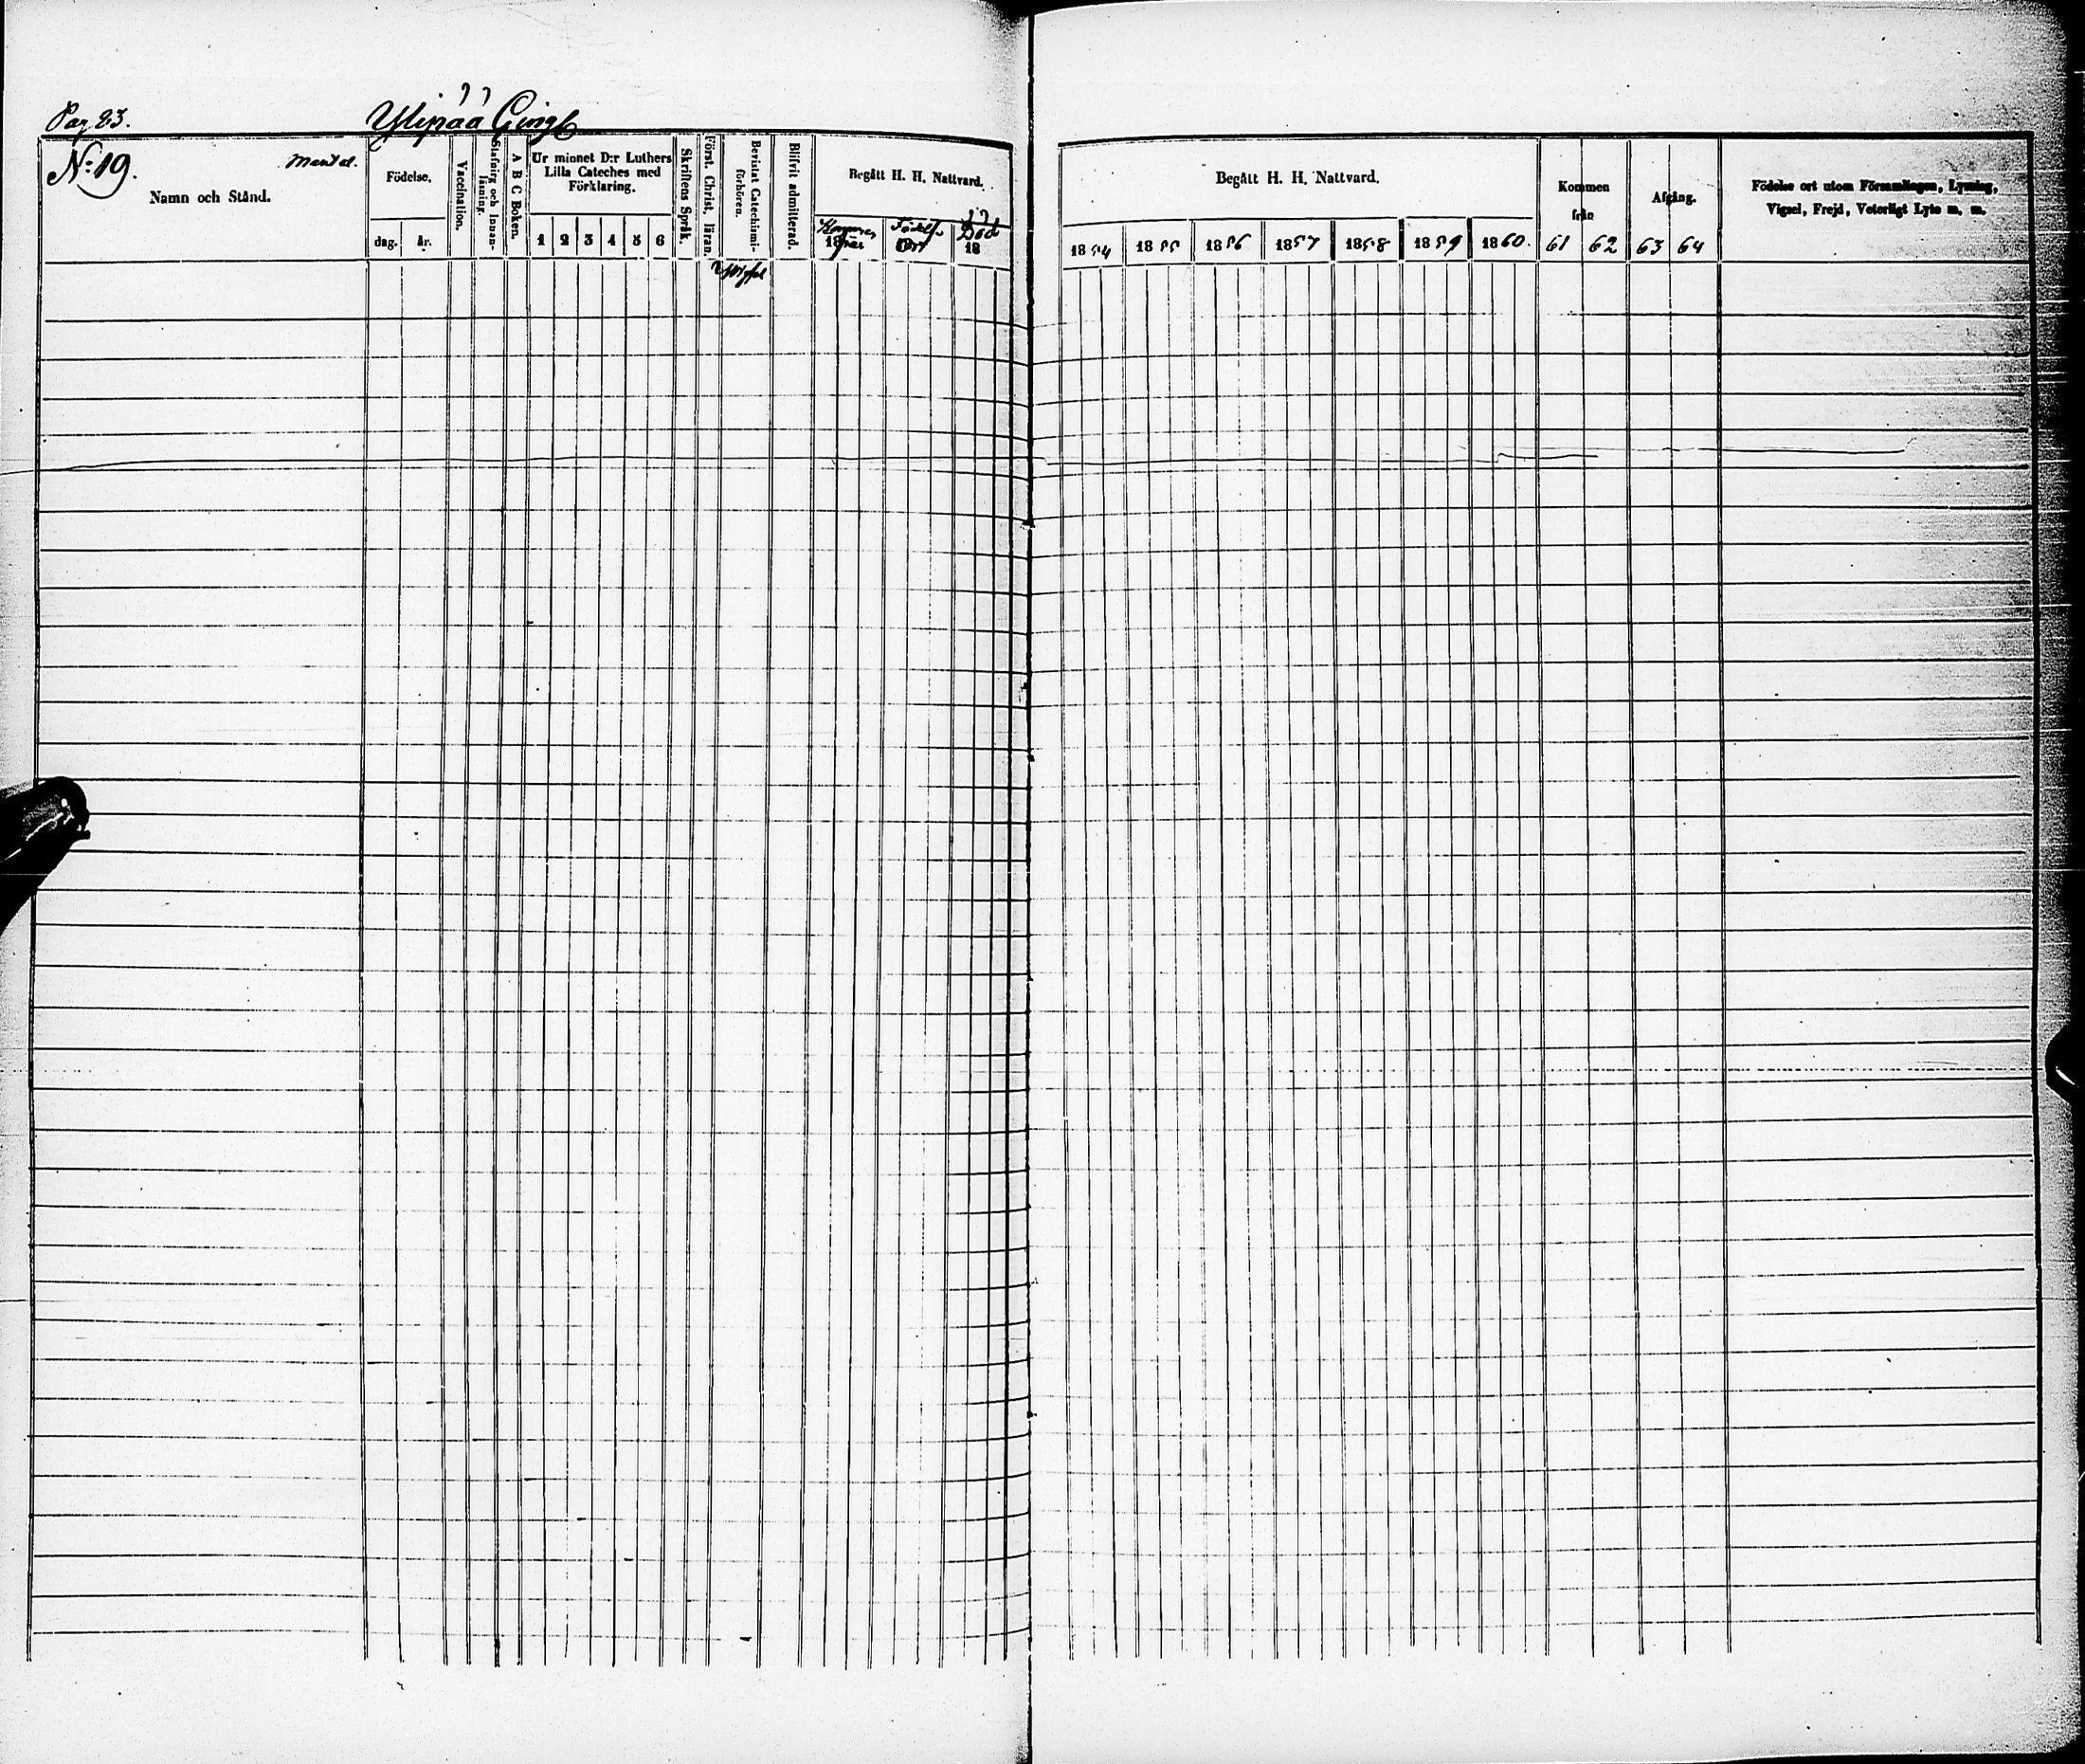 Pag 23. Ylipää
N:o 19. Mantal.
Namn och Stånd.
Födelse.
dag. år.
Vaccination.
Stafning och Innan-
läsning.
A B C Boken.
Ur minnet D:r Luthers
Lilla Cateches med
Förklaring.
1 2 3 4 5 6
Skriftens Språk.
Först. Christ. läran.
Bevistat Catechismi-
förhören.
Blifvit admitterad.
Begått H. H. Nattvard.
18 18 Död 18
Begått H. H. Nattvard.
1854 1855 1856 1857 1858 1859 1860.
Kommen
från
61 62
Afgång.
63 64
Födelse ort utom Församlingen, Lysning,
Vigsel, Frejd, Veterligt Lyte m. m.